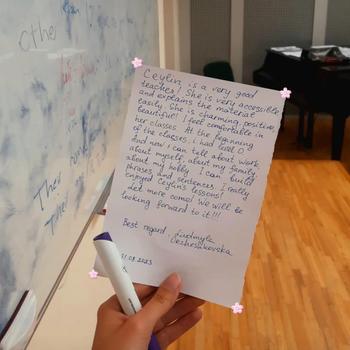 othe
Ceylin is a very good
teacher! She is very accessible
and explains the material
easily. She is charming, positive,
beautiful! I feel comfortable in
her classes. At the beginning
of the classes, i had level 0
And now i can tell about work,
about myself, about my family,
about my hobby. I can build
phrases and sentences. I really
enjoyed Ceylin's lessons!
Let more come! We will be
looking forward to it!!!
Best regard, Liudmyla
31.08.2023